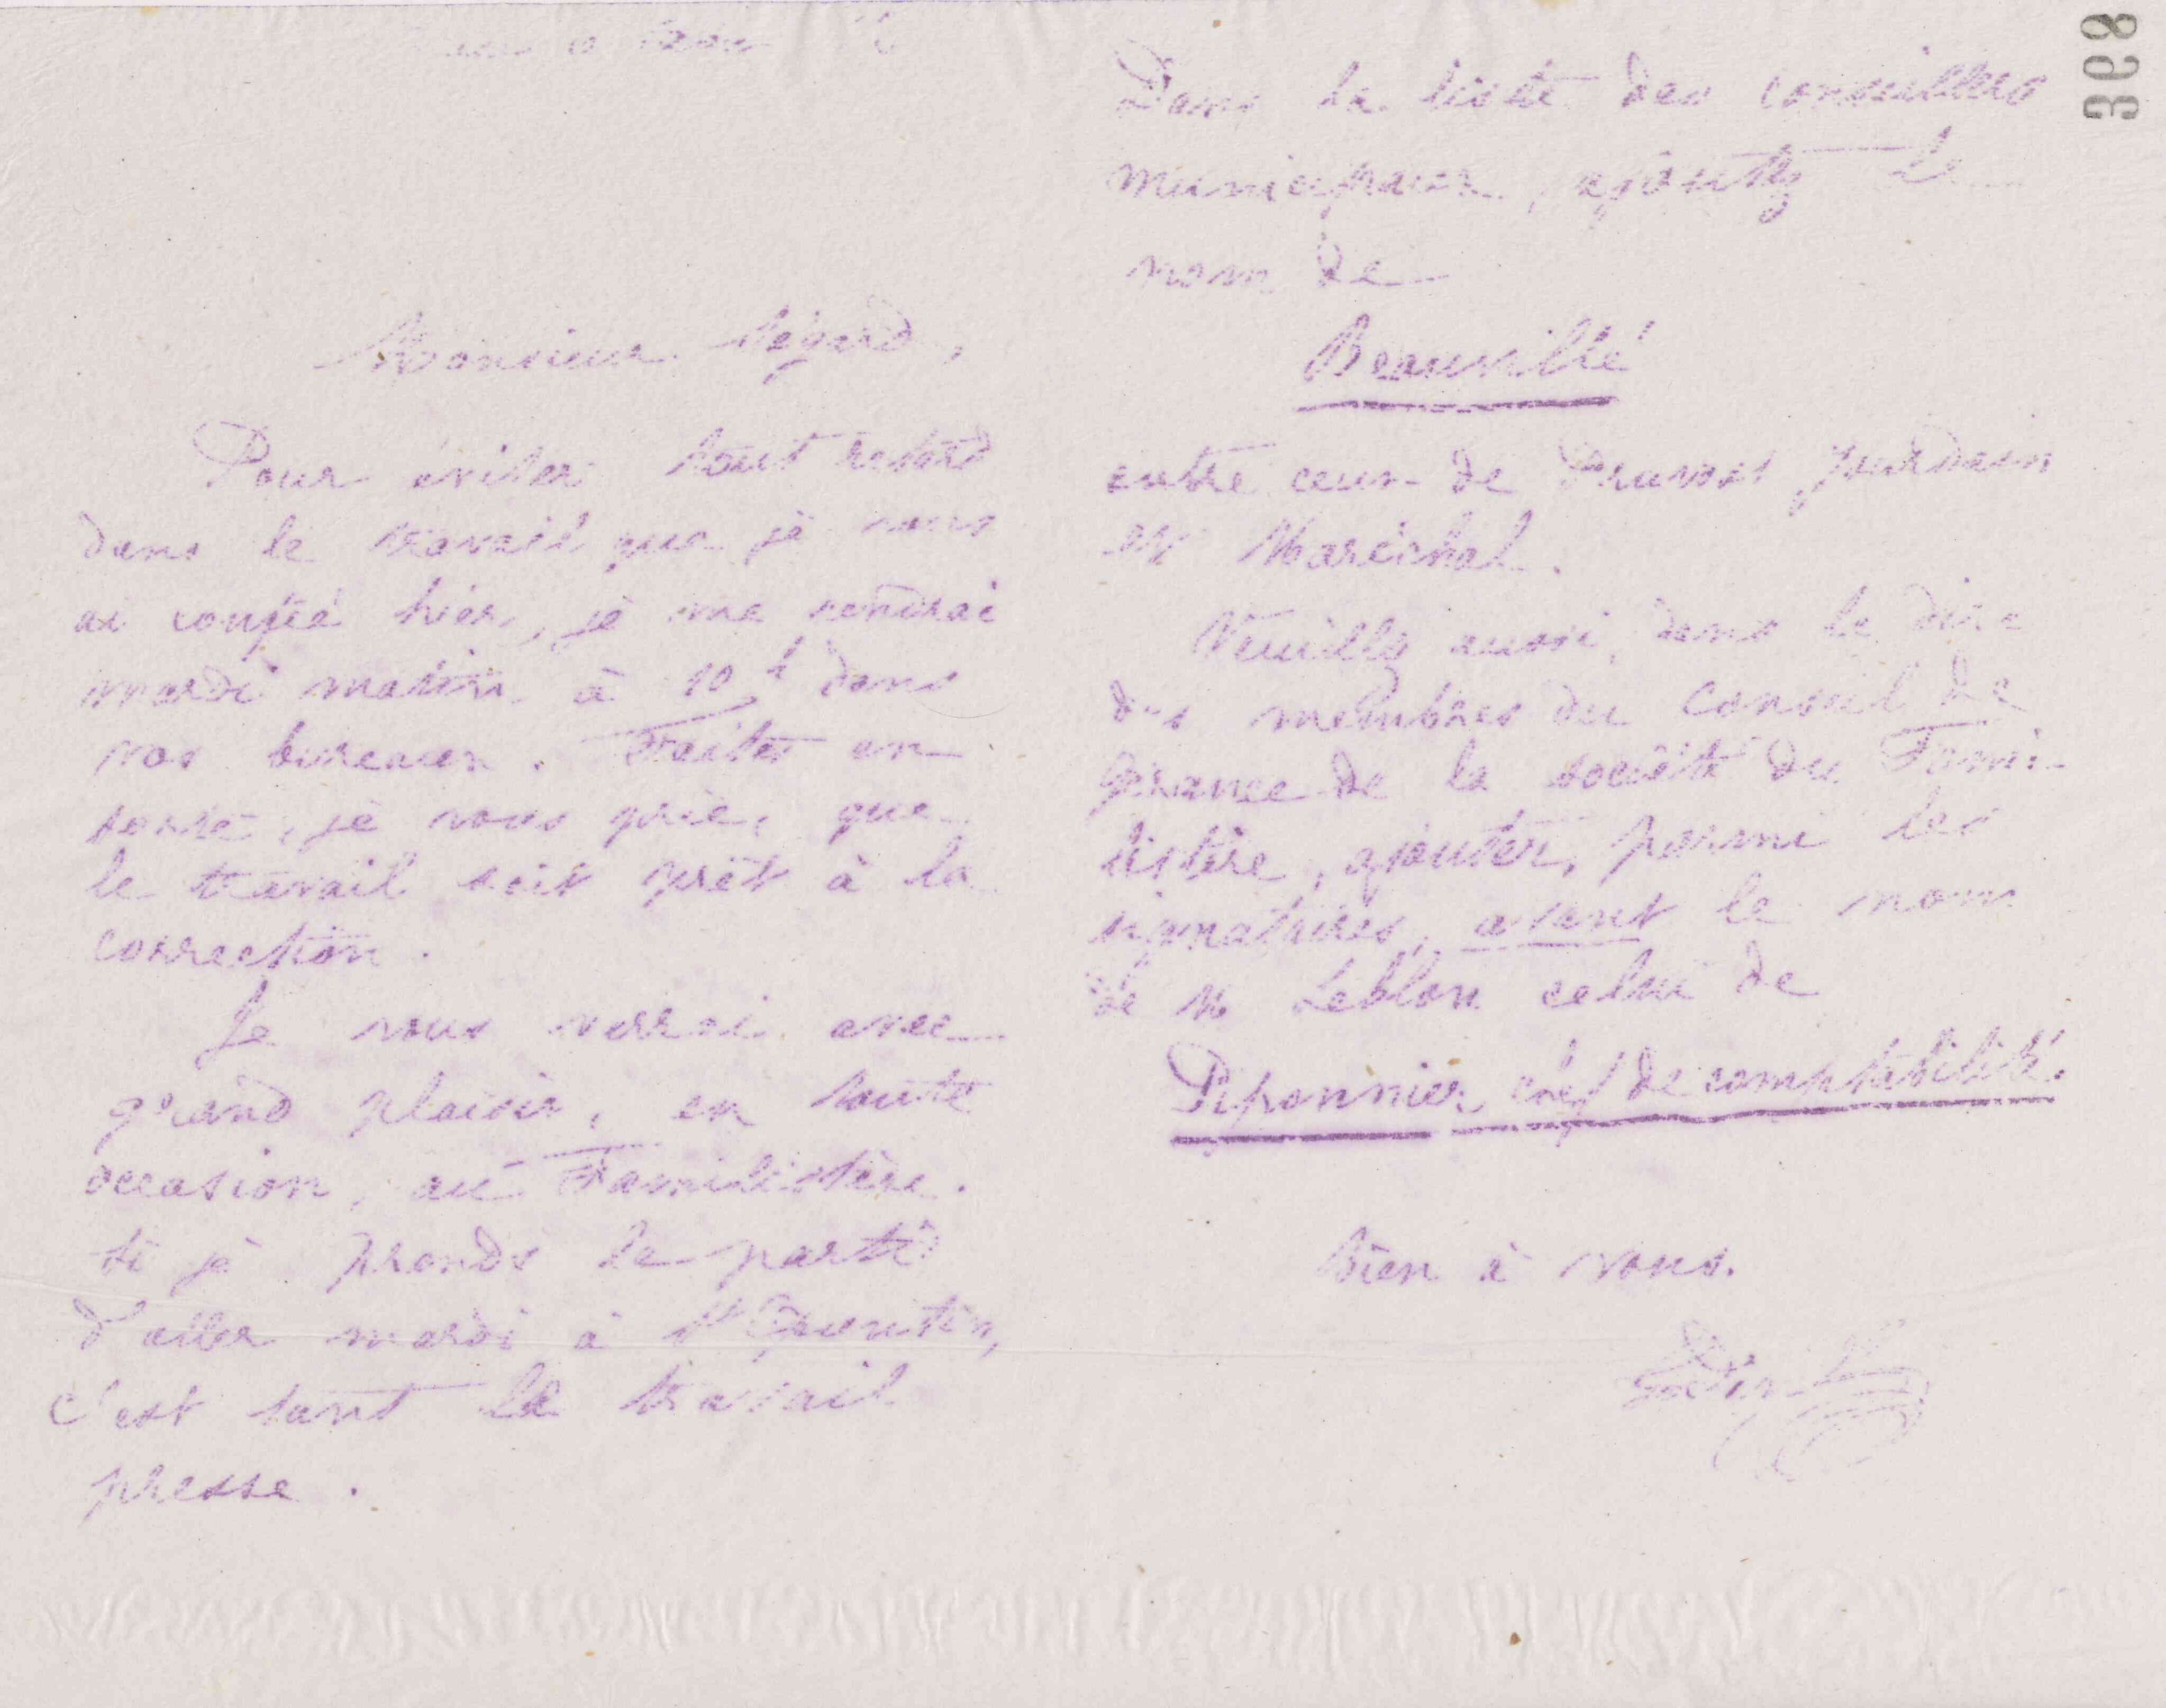 Monsieur Négard,
Pour éviter tout retard
dans le travail que je vous
ai confié hier, je me rendrai
mardi matin à 10 h dans
vos bureaux. Faites en
sorte, je vous prie, que
le travail soit prêt à la
correction.
Je vous verrai avec
grand plaisir, en toute
occasion, au Familistère.
Si je prends le parti
d'aller mardi à St Quentin,
c'est tant le travail
presse.
398
Dans la liste des conseillers
municipaux, ajoutez le
nom de
Beauvillé
entre ceux de Pruvost Jourdain
et Maréchal.
Veuillez aussi, dans le dire
des membres du Conseil de
Gérance de la société du Fami-
listère, ajouter, parmi les
signataires, avant le nom
de M Leblon celui de
Piponnier, chef de comptabilité.
Bien à vous.
Godin